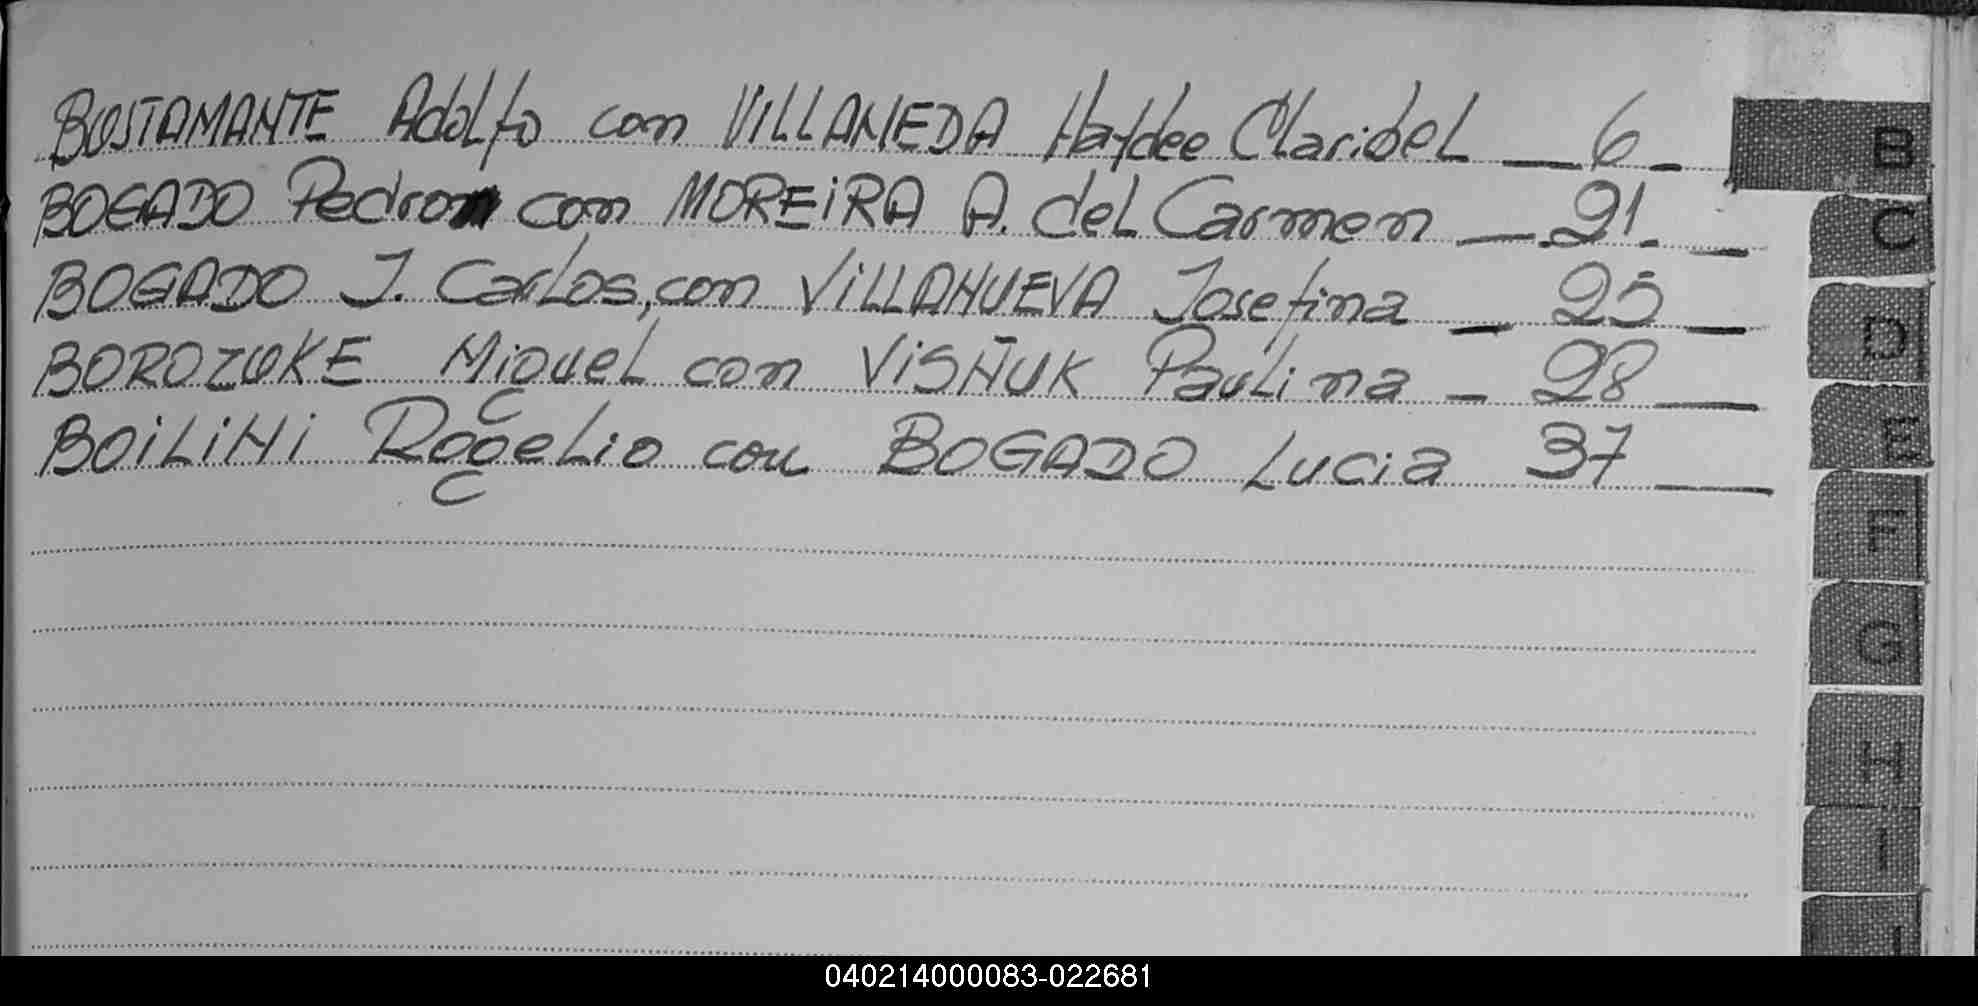 BUSTAMANTE Adolfo con VILLANEDA Haydee Claribel __ 6 _
BOGADO Pedro con MOREIRA A. del Carmen __ 21. _
BOGADO J. Carlos, con VILLANUEVA Josefina _ 25 _
BOROZUKE Miguel con VISÑUK Paulina _ 28 __
BOILINI Rogelio con BOGADO Lucia 37 __
B
C
D
E
F
G
H
I
040214000083-022681